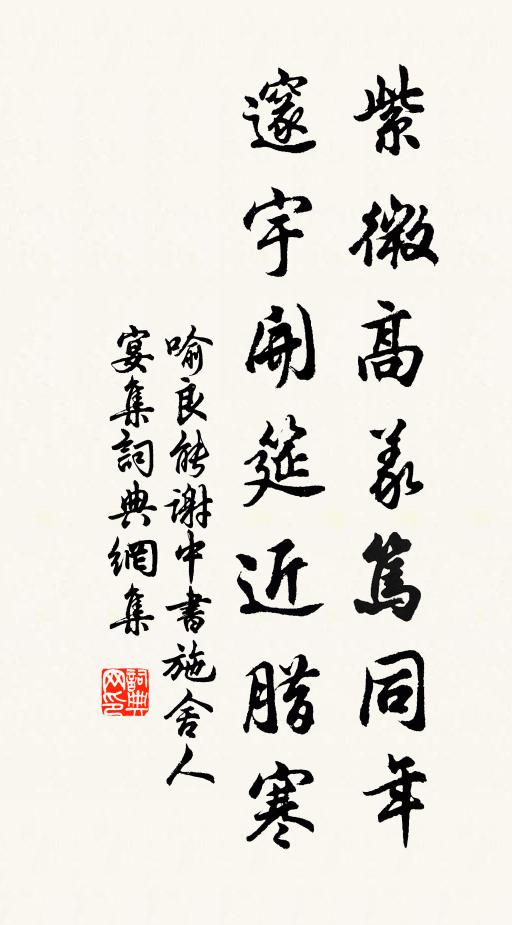 紫微高義篤同年
邃宇開筵近腊寒
喻良能謝中書施舍人
宴集詞典網集
詞典网印